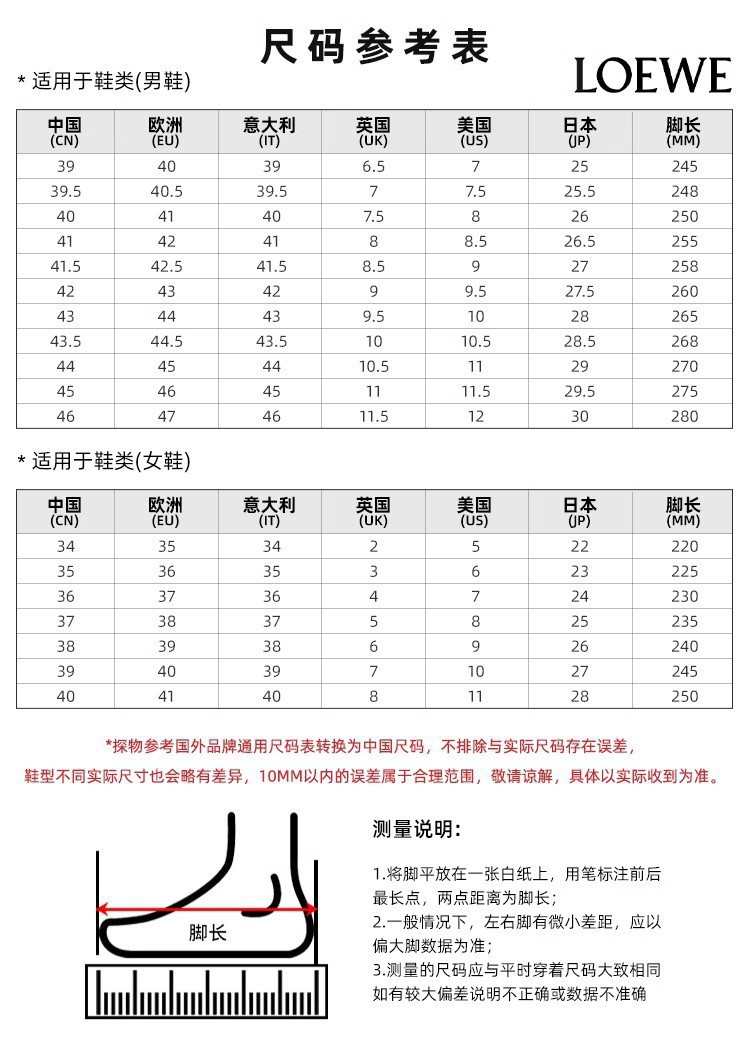 尺码参考表
* 适用于鞋类(男鞋)
LOEWE
中国 欧洲 意大利 英国 美国 日本 脚长
(CN) (EU) (IT) (UK) (US) (JP) (MM)
39 40 39 6.5 7 25 245
39.5 40.5 39.5 7 7.5 25.5 248
40 41 40 7.5 8 26 250
41 42 41 8 8.5 26.5 255
41.5 42.5 41.5 8.5 9 27 258
42 43 42 9 9.5 27.5 260
43 44 43 9.5 10 28 265
43.5 44.5 43.5 10 10.5 28.5 268
44 45 44 10.5 11 29 270
45 46 45 11 11.5 29.5 275
46 47 46 11.5 12 30 280
* 适用于鞋类(女鞋)
中国 欧洲 意大利 英国 美国 日本 脚长
(CN) (EU) (IT) (UK) (US) (JP) (MM)
34 35 34 2 5 22 220
35 36 35 3 6 23 225
36 37 36 4 7 24 230
37 38 37 5 8 25 235
38 39 38 6 9 26 240
39 40 39 7 10 27 245
40 41 40 8 11 28 250
*探物参考国外品牌通用尺码表转换为中国尺码，不排除与实际尺码存在误差，
鞋型不同实际尺寸也会略有差异，10MM以内的误差属于合理范围，敬请谅解，具体以实际收到为准。
脚长
测量说明:
1.将脚平放在一张白纸上，用笔标注前后
最长点，两点距离为脚长；
2.一般情况下，左右脚有微小差距，应以
偏大脚数据为准；
3.测量的尺码应与平时穿着尺码大致相同
如有较大偏差说明不正确或数据不准确